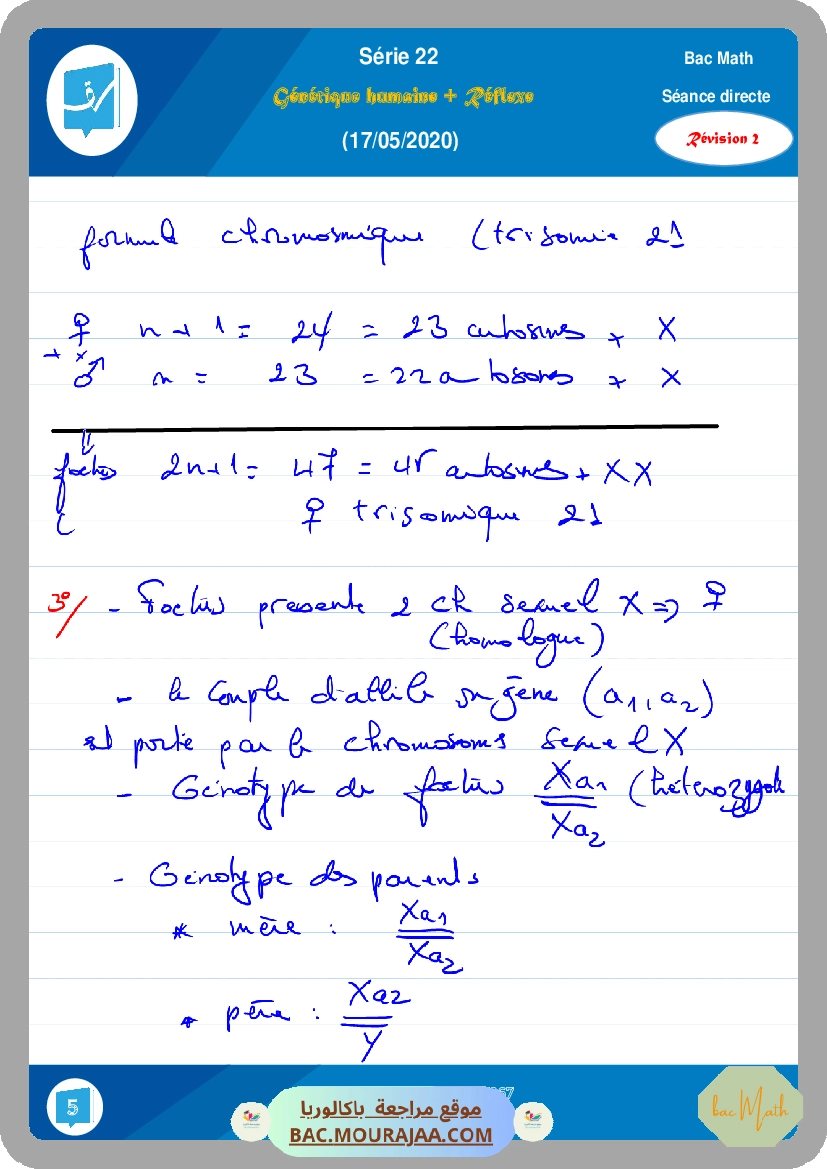 Série 22
Bac Math
Génétique humaine + Réflexe
Séance directe
(17/05/2020)
Révision 2
formule chromosmique (trisomie 21
♀ n + 1 = 24 = 23 autosomes + X
+ x
♂ n = 23 = 22 autosomes + X
foetus 2n+1 = 47 = 45 autosomes + XX
♀ trisomique 21
3°/ - Foetus presente 2 ch sexuel X => ♀
(homologue)
- le couple d'allèle du gène (a1, a2)
est porté par le chromosoms sexuel X
- Génotype de foetus Xa1 (hétérozygote
Xa2
- Génotype des parents
* mère : Xa1
Xa2
* père : Xa2
Y
5
موقع مراجعة باكالوريا
BAC.MOURAJAA.COM
bac Math